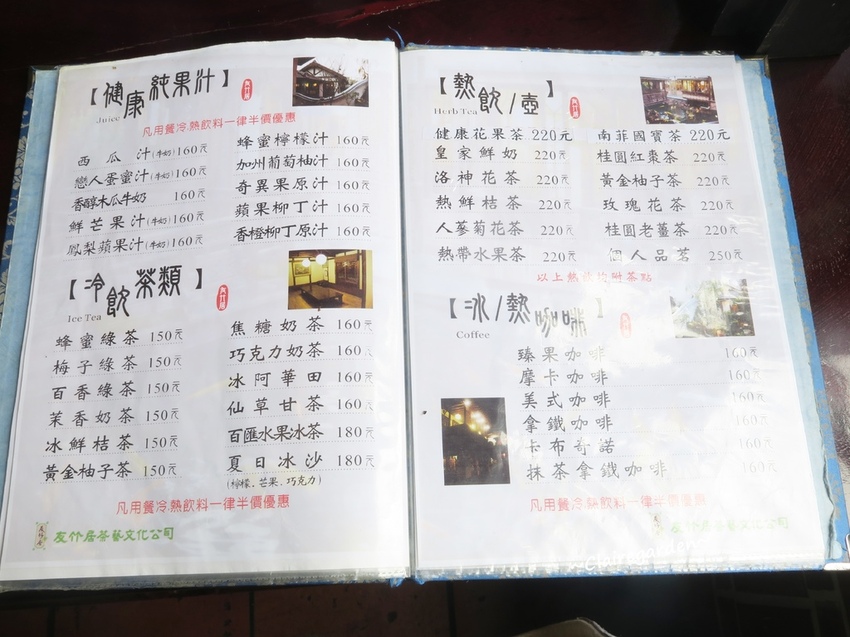 【健康純果汁】
Juice
凡用餐冷.熱飲料一律半價優惠
西瓜汁(牛奶)160元
戀人蛋蜜汁(牛奶)160元
香醇木瓜牛奶 160元
鮮芒果汁(牛奶)160元
鳳梨蘋果汁(牛奶)160元
蜂蜜檸檬汁 160元
加州葡萄柚汁 160元
奇異果原汁 160元
蘋果柳丁汁 160元
香橙柳丁原汁 160元
【冷飲茶類】
Ice Tea
蜂蜜綠茶 150元
梅子綠茶 150元
百香綠茶 150元
茉香奶茶 150元
冰鮮桔茶 150元
黃金柚子茶 150元
焦糖奶茶 160元
巧克力奶茶 160元
冰阿華田 160元
仙草甘茶 160元
百匯水果冰茶 180元
夏日冰沙 180元
(檸檬.芒果.巧克力)
凡用餐冷.熱飲料一律半價優惠
友竹居茶藝文化公司
【熱飲/壺】
Herb Tea
健康花果茶 220元
皇家鮮奶 220元
洛神花茶 220元
熱鮮桔茶 220元
人蔘菊花茶 220元
熱帶水果茶 220元
南菲國寶茶 220元
桂圓紅棗茶 220元
黃金柚子茶 220元
玫瑰花茶 220元
桂圓老薑茶 220元
個人品茗 250元
以上熱飲均附茶點
【冰/熱咖啡】
Coffee
臻果咖啡 160元
摩卡咖啡 160元
美式咖啡 160元
拿鐵咖啡 160元
卡布奇諾 160元
抹茶拿鐵咖啡 160元
凡用餐冷.熱飲料一律半價優惠
友竹居茶藝文化公司